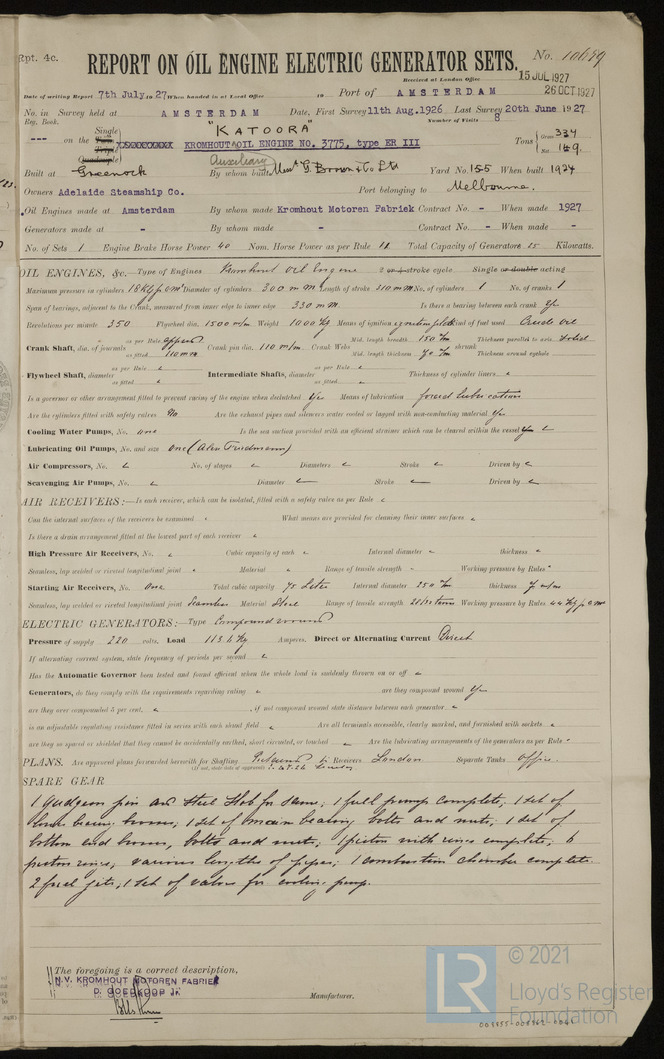 Rpt. 4c.
REPORT ON OIL ENGINE ELECTRIC GENERATOR SETS.
No. 10689
Received at London Office
15 JUL 1927
26 OCT 1927
Date of writing Report 7th July 1927 When handed in at Local Office 19 Port of AMSTERDAM
No. in Survey held at AMSTERDAM Date, First Survey 11th Aug. 1926 Last Survey 20th June 1927
Reg. Book. Number of Visits 8
--- on the Single Twin Triple Quadruple "KATOORA" Tons Gross 334 Net 149
KROMHOUT OIL ENGINE NO. 3775, type ER III
Auxiliary
Built at Greenock By whom built Messrs G. Brown & Co Ltd Yard No. 155 When built 1924
Owners Adelaide Steamship Co. Port belonging to Melbourne.
Oil Engines made at Amsterdam By whom made Kromhout Motoren Fabriek Contract No. - When made 1927
Generators made at - By whom made - Contract No. - When made -
No. of Sets 1 Engine Brake Horse Power 40 Nom. Horse Power as per Rule 11 Total Capacity of Generators 15 Kilowatts.
OIL ENGINES, &c. Type of Engines Kromhout Oil Engine 2 or 4 stroke cycle Single or double acting
Maximum pressure in cylinders 18 Kg p cm² Diameter of cylinders 300 mm Length of stroke 310 mm No. of cylinders 1 No. of cranks 1
Span of bearings, adjacent to the Crank, measured from inner edge to inner edge 330 mm Is there a bearing between each crank Yes
Revolutions per minute 350 Flywheel dia. 1500 m/m Weight 1000 Kg Means of ignition Kind of fuel used Crude oil
Crank Shaft, dia. of journals as per Rule appvd as fitted 110 mm Crank pin dia. 110 m/m Crank Webs Mid. length breadth 150 m/m Mid. length thickness 70 m/m shrunk Thickness parallel to axis Solid Thickness around eyehole
Flywheel Shaft, diameter as per Rule as fitted Intermediate Shafts, diameter as per Rule as fitted Thickness of cylinder liners
Is a governor or other arrangement fitted to prevent racing of the engine when declutched Yes Means of lubrication forced lubrication
Are the cylinders fitted with safety valves No Are the exhaust pipes and silencers water cooled or lagged with non-conducting material Yes
Cooling Water Pumps, No. one Is the sea suction provided with an efficient strainer which can be cleared within the vessel Yes
Lubricating Oil Pumps, No. and size one (Alex Friedmann)
Air Compressors, No. No. of stages Diameters Stroke Driven by
Scavenging Air Pumps, No. Diameter Stroke Driven by
AIR RECEIVERS:—Is each receiver, which can be isolated, fitted with a safety valve as per Rule
Can the internal surfaces of the receivers be examined What means are provided for cleaning their inner surfaces
Is there a drain arrangement fitted at the lowest part of each receiver
High Pressure Air Receivers, No. Cubic capacity of each Internal diameter thickness
Seamless, lap welded or riveted longitudinal joint Material Range of tensile strength Working pressure by Rules
Starting Air Receivers, No. One Total cubic capacity 75 Liter Internal diameter 250 m/m thickness 7 m/m
Seamless, lap welded or riveted longitudinal joint Seamless Material Steel Range of tensile strength Working pressure by Rules 44 Kg p cm²
ELECTRIC GENERATORS:—Type Compound wound
Pressure of supply 220 volts. Load Amperes. Direct or Alternating Current Direct
If alternating current system, state frequency of periods per second
Has the Automatic Governor been tested and found efficient when the whole load is suddenly thrown on or off
Generators, do they comply with the requirements regarding rating are they compound wound Yes
are they over compounded 5 per cent. , if not compound wound state distance between each generator
is an adjustable regulating resistance fitted in series with each shunt field Are all terminals accessible, clearly marked, and furnished with sockets
are they so spaced or shielded that they cannot be accidentally earthed, short circuited, or touched Are the lubricating arrangements of the generators as per Rule
PLANS. Are approved plans forwarded herewith for Shafting Receivers London Separate Tanks Office.
(If not, state date of approval)
SPARE GEAR
1 gudgeon pin and steel for same; 1 fuel pump complete; 1 set of
bearing brasses; 1 set of main bearing bolts and nuts; 1 set of
bottom end brasses, bolts and nuts; 1 piston with rings complete; 6
piston rings; various lengths of pipes; 1 combustion chamber complete.
2 fuel jets; 1 set of valves for cooling pump.
The foregoing is a correct description,
N.V. KROMHOUT MOTOREN FABRIEK
D. GOEDKOOP Jr.
Manufacturer.
LR
© 2021
Lloyd's Register
Foundation